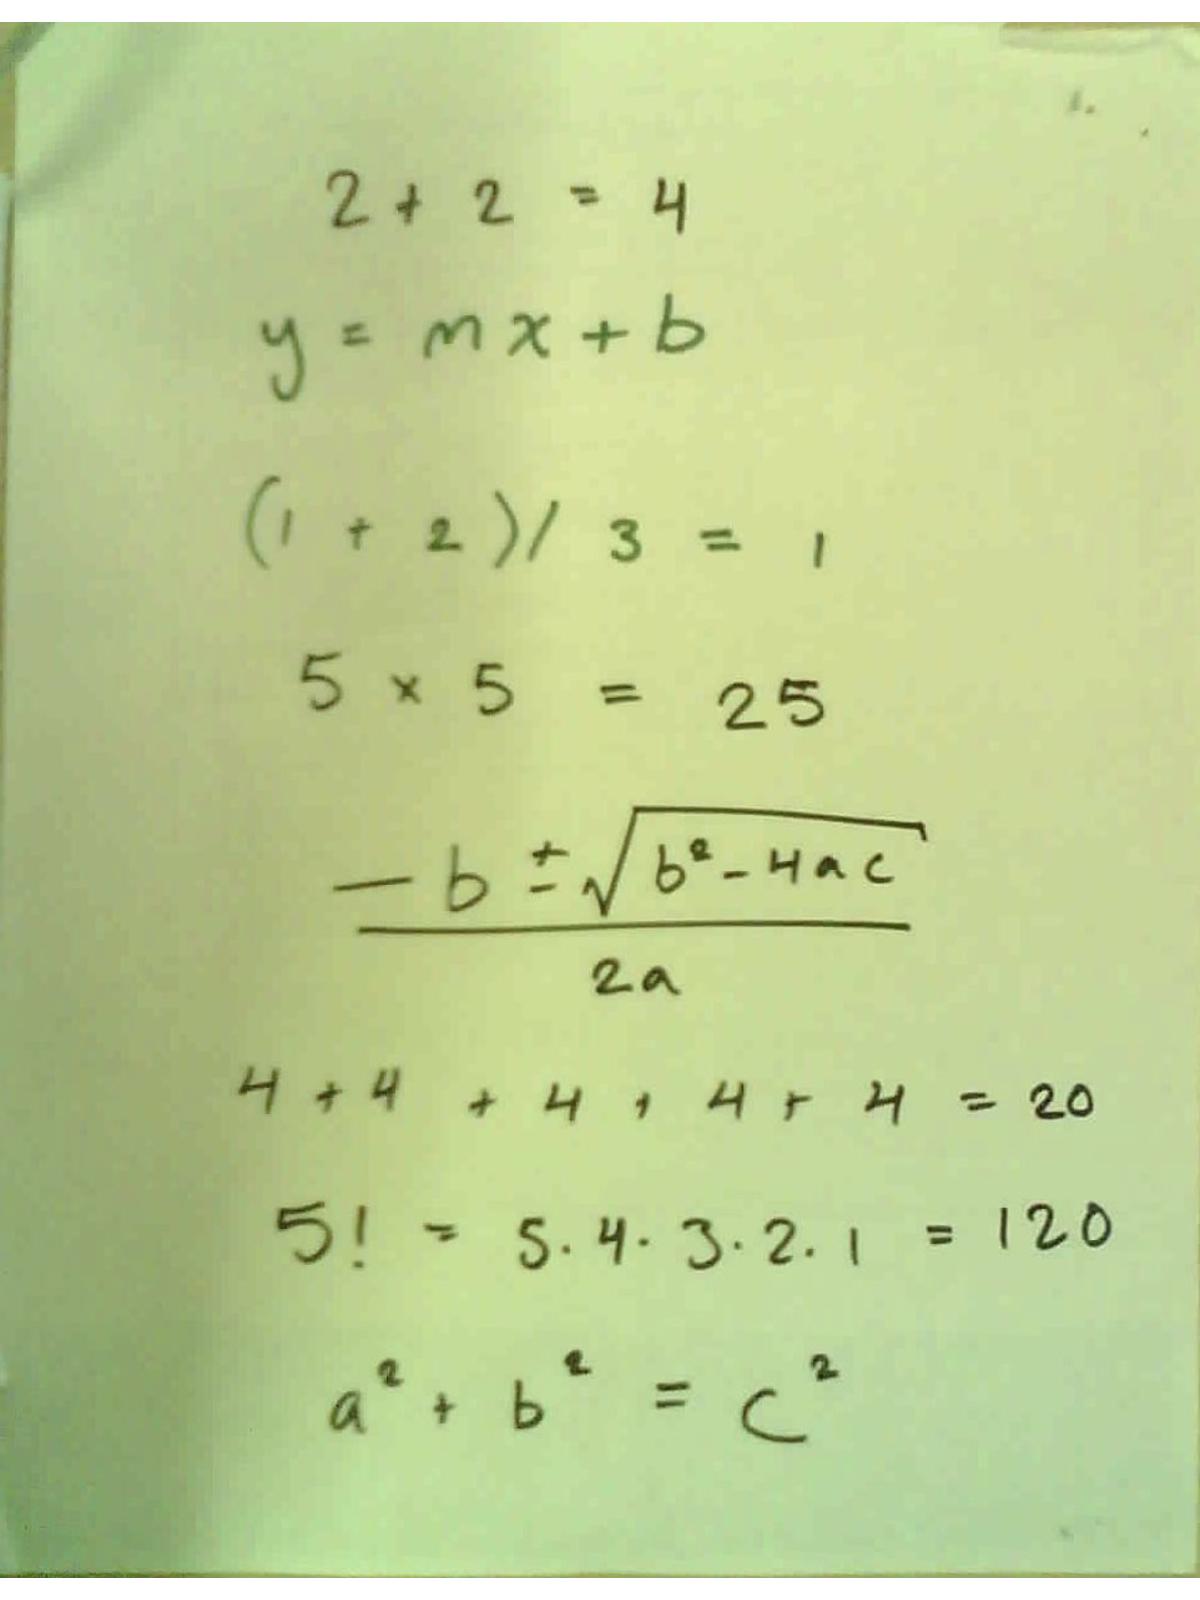 2 + 2 = 4
y = mx + b
(1 + 2)/ 3 = 1
5 × 5 = 25
− b ± √(b² − 4ac)
2a
4 + 4 + 4 + 4 + 4 = 20
5! = 5 · 4 · 3 · 2 · 1 = 120
a² + b² = c²